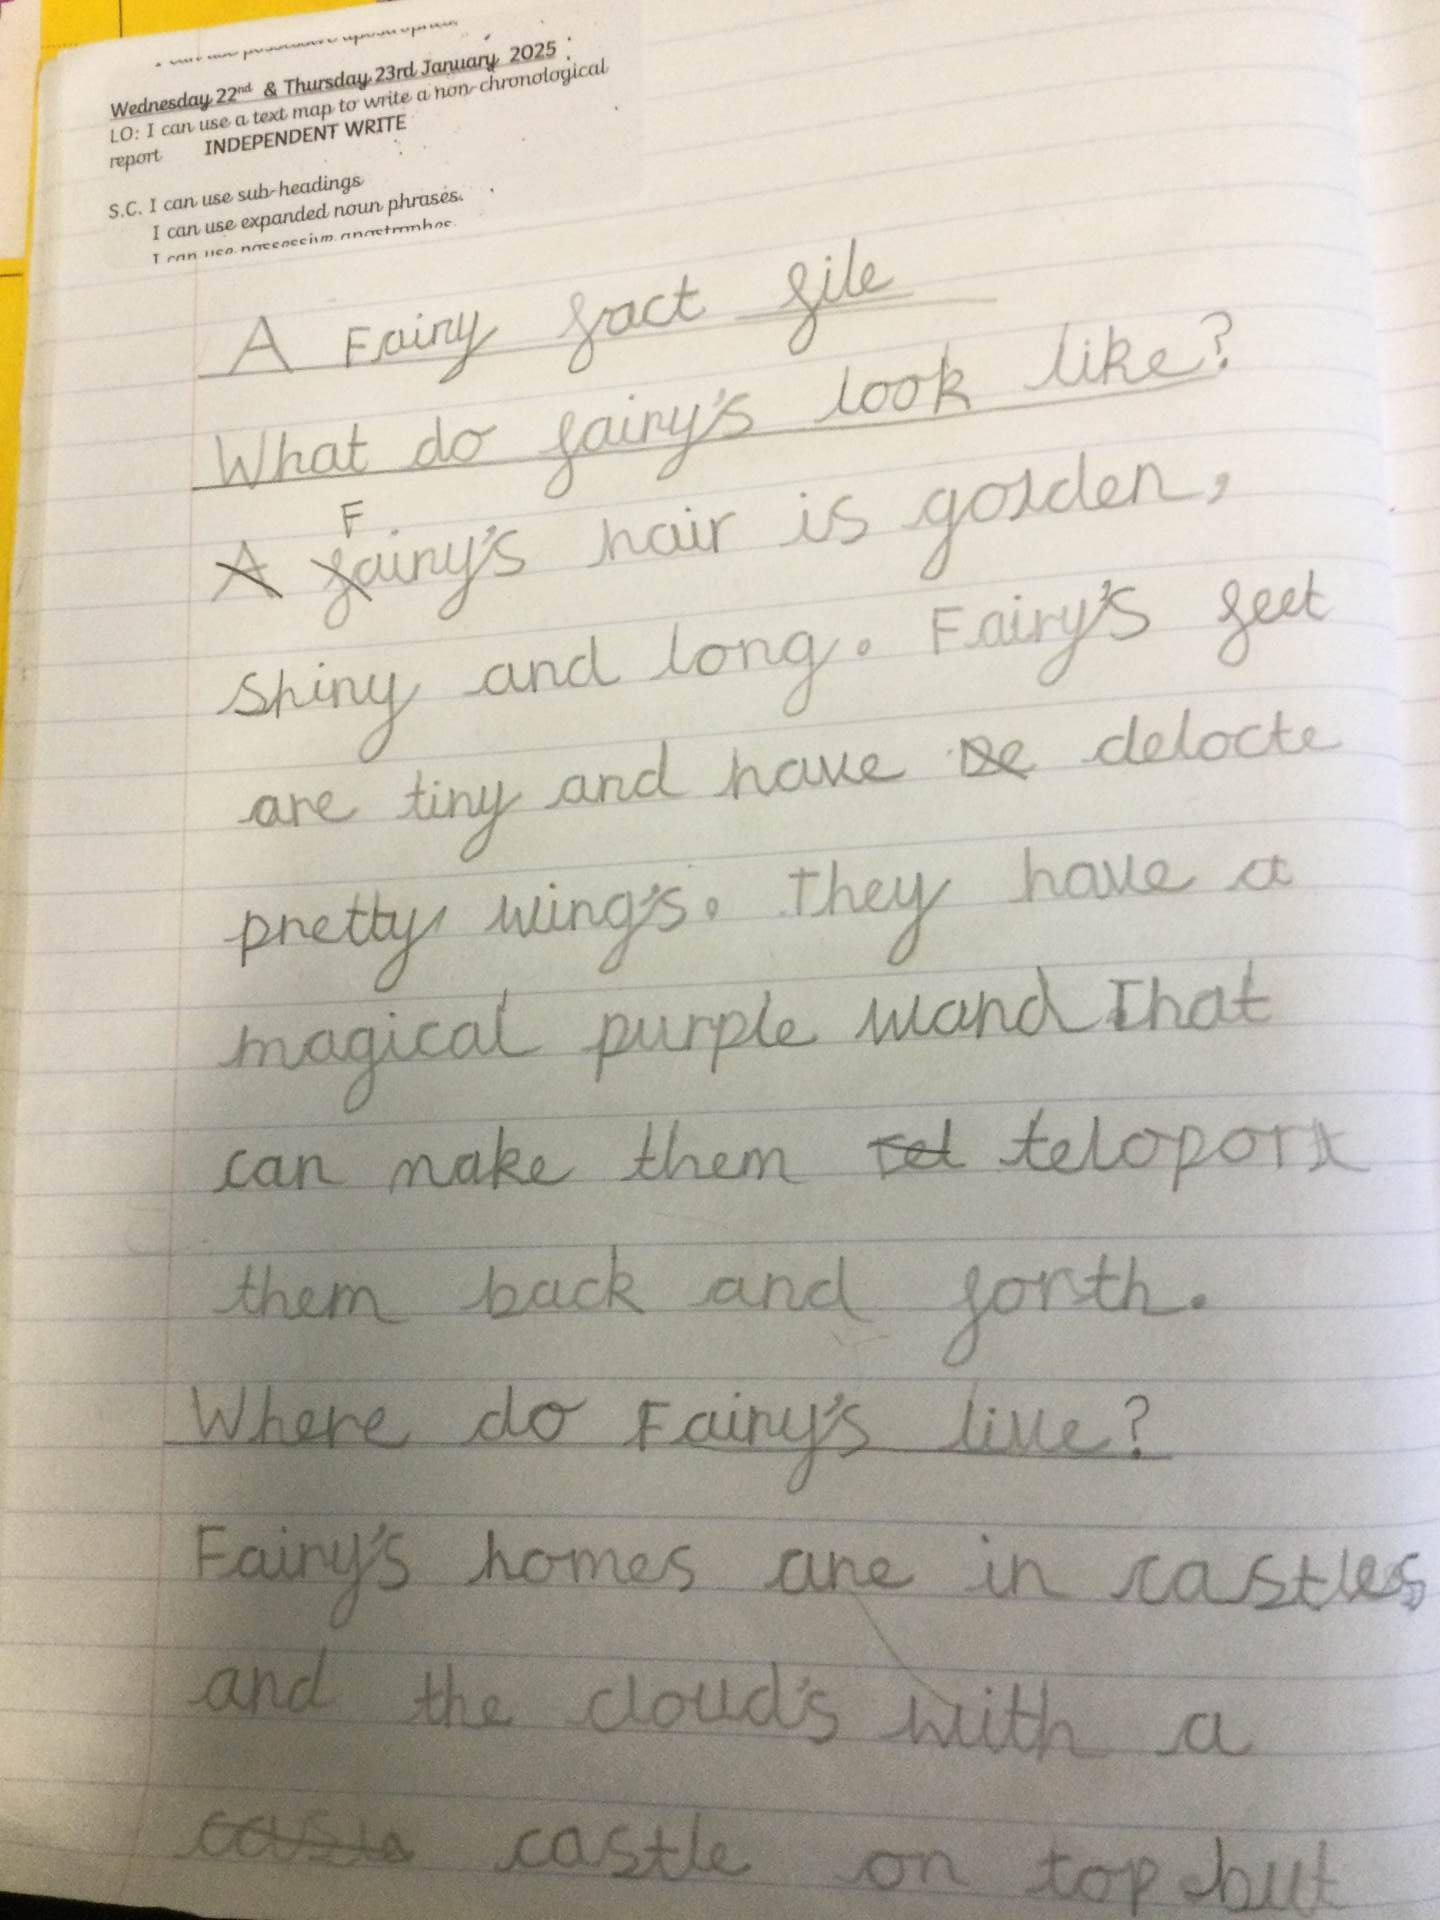 Wednesday 22nd & Thursday 23rd January 2025
LO: I can use a text map to write a non-chronological
report INDEPENDENT WRITE
S.C. I can use sub-headings
I can use expanded noun phrases.
I can use possessive apostrophes.
A Fairy fact file
What do fairy's look like?
F
A fairy's hair is golden,
shiny and long. Fairy's feet
are tiny and have De delocte
pretty wing's. They have a
magical purple wand That
can make them tel teloport
them back and forth.
Where do Fairy's live?
Fairy's homes are in castles
and the cloud's with a
castle on top but